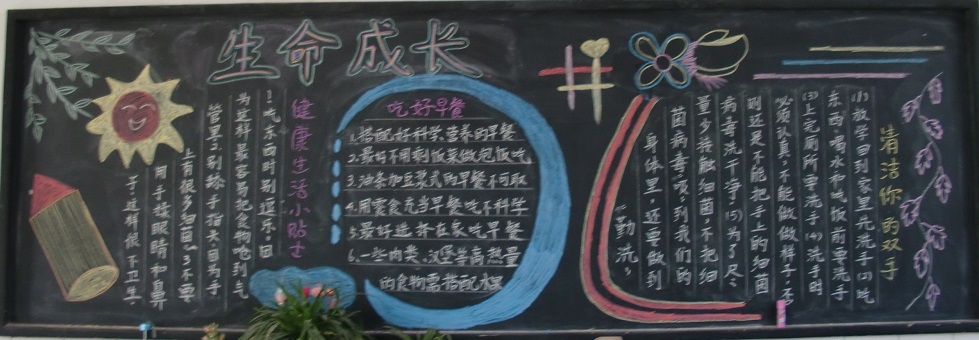 生命成长
清洁你的双手
(1)放学回到家里先洗手(2)吃
东西、喝水和吃饭前要洗手
(3)上完厕所要洗手(4)洗手时
必须认真,不能做做样子,否
则还是不能把手上的细菌
病毒洗干净。(5)为了尽
量少接触细菌,不把细
菌病毒"吸"到我们的
身体里,还要做到
"勤洗"
吃好早餐
1.搭配好科学营养的早餐
2.最好不用剩饭菜做泡饭吃
3.油条加豆浆式的早餐不可取
4.用零食充当早餐吃不科学
5.最好选择在家吃早餐
6.一些肉类、汉堡等高热量
的食物需搭配水果
健康生活小贴士
1.吃东西时别逗乐因
为这样最容易把食物呛到气
管里2.别舔手指头,因为手
上有很多细菌。3.不要
用手揉眼睛和鼻
子这样很不卫生